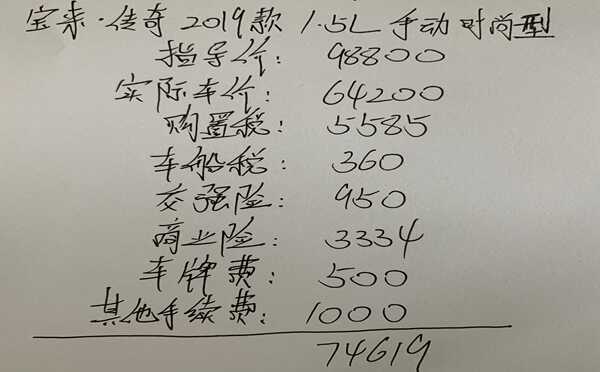 宝来·传奇 2019款 1.5L 手动时尚型
指导价: 98800
实际车价: 64200
购置税: 5585
车船税: 360
交强险: 950
商业险: 3334
车牌费: 500
其他手续费: 1000
74619